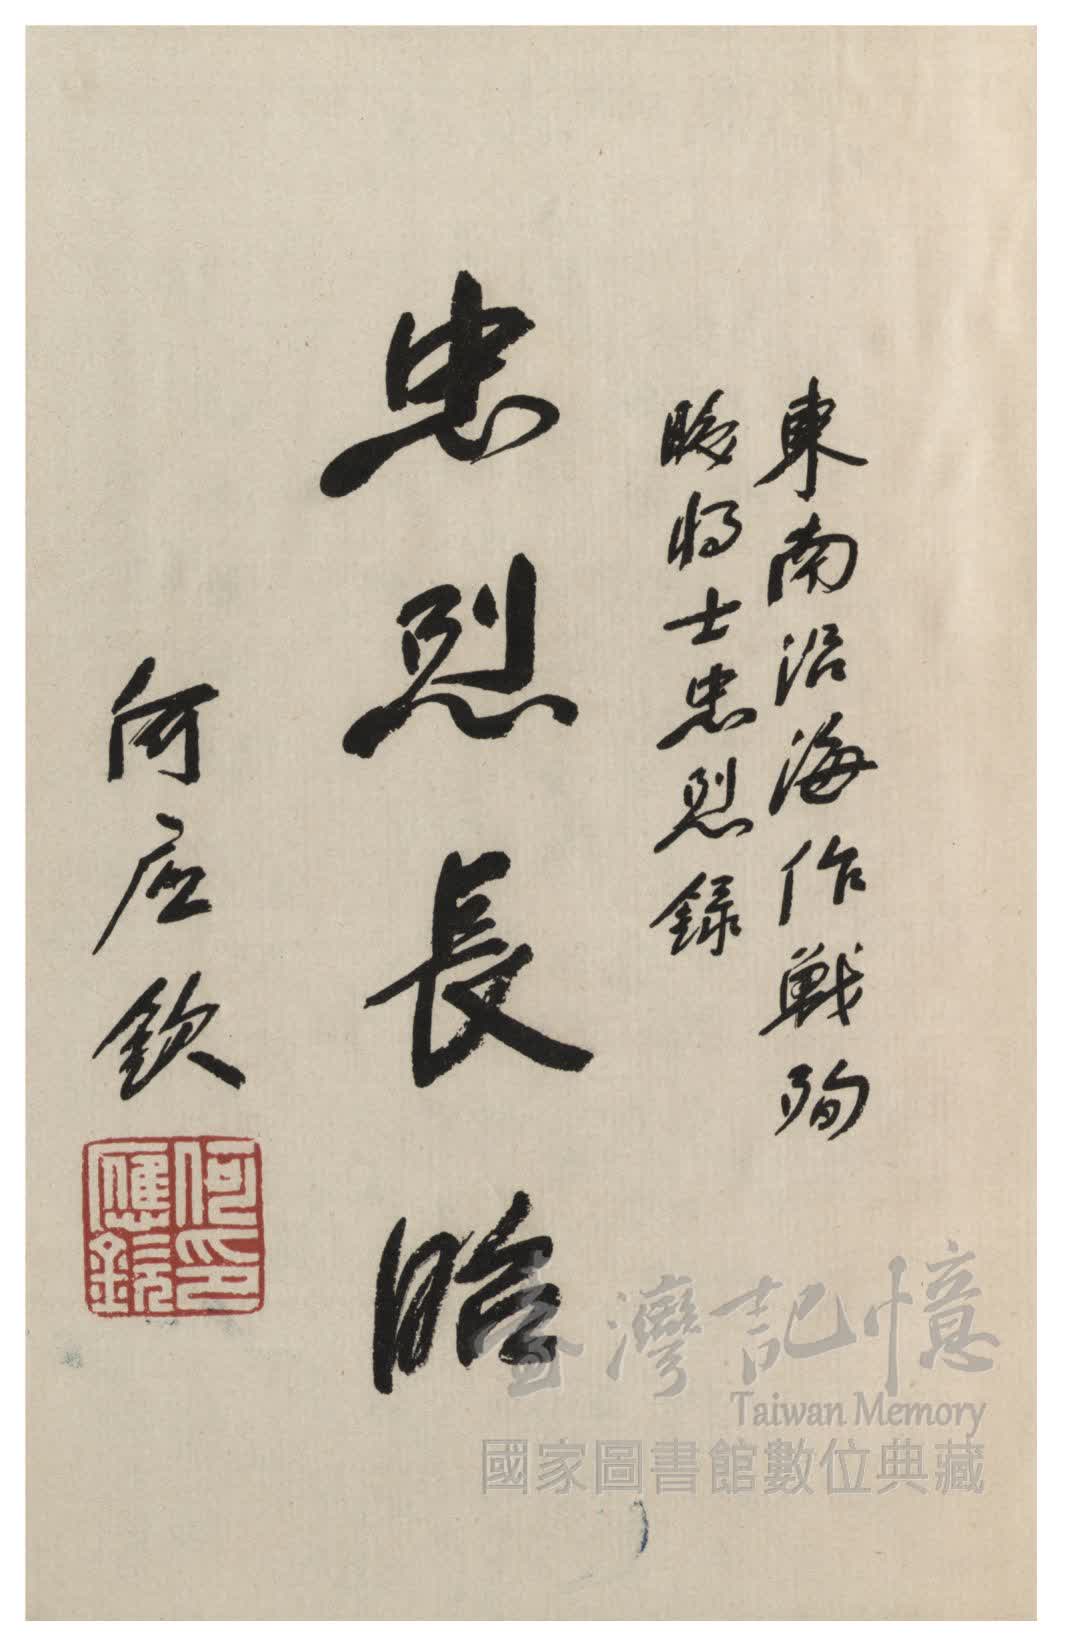 東南沿海作戰殉
將士忠烈錄
忠烈長昭
何應欽
何印
應欽
臺灣記憶
Taiwan Memory
國家圖書館數位典藏